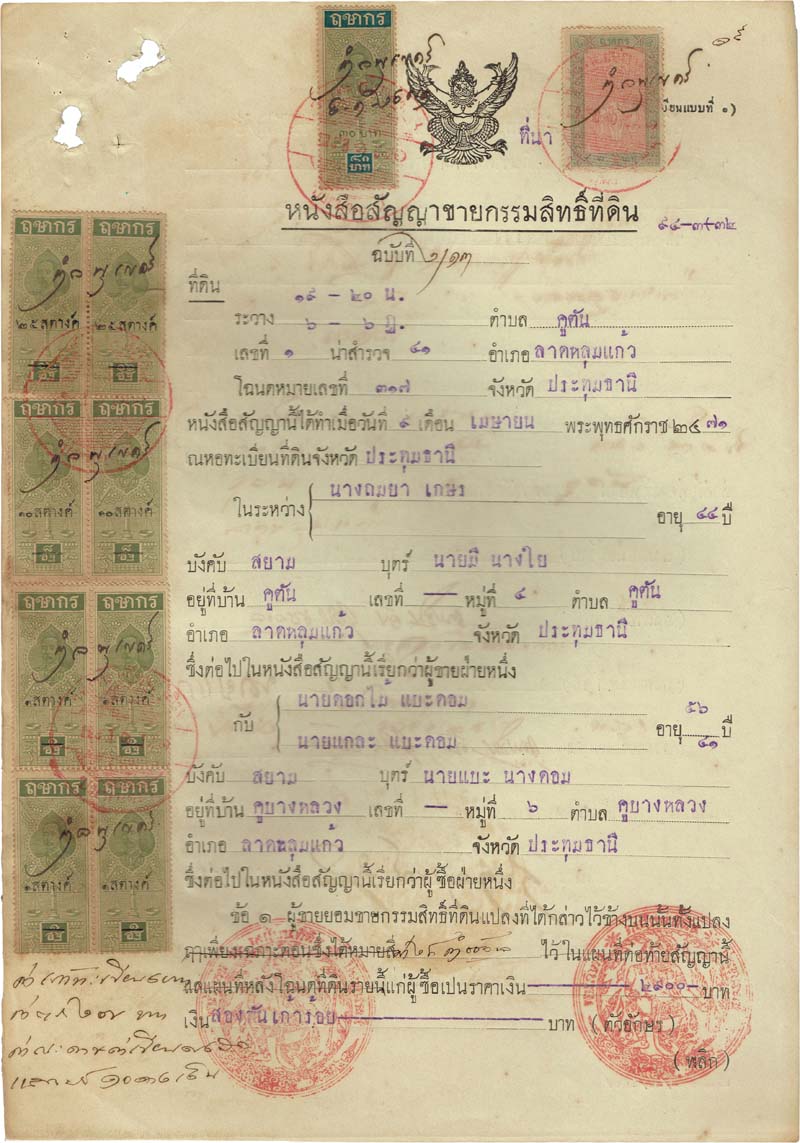 ฤชากร
๓๐ บาท
๘๐ บาท
ที่นา
เขียนแบบที่ ๑)
หนังสือสัญญาขายกรรมสิทธิ์ที่ดิน
๙๔-๓๗๓๒
ฉบับที่ ๖/๑๓
ที่ดิน
๑๙ - ๒๐ น.
ระวาง ๖ - ๖ ฎ. ตำบล คูตัน
เลขที่ ๑ น่าสำรวจ ๔๑ อำเภอ ลาดหลุมแก้ว
โฉนดหมายเลขที่ ๓๑๗ จังหวัด ประทุมธานี
หนังสือสัญญานี้ได้ทำเมื่อวันที่ ๙ เดือน เมษายน พระพุทธศักราช ๒๔๗๑
ณหอทะเบียนที่ดินจังหวัด ประทุมธานี
ในระหว่าง นางถมยา เกษร อายุ ๔๔ ปี
บังคับ สยาม บุตร์ นายมี นางใย
อยู่ที่บ้าน คูตัน เลขที่ — หมู่ที่ ๔ ตำบล คูตัน
อำเภอ ลาดหลุมแก้ว จังหวัด ประทุมธานี
ซึ่งต่อไปในหนังสือสัญญานี้เรียกว่าผู้ขายฝ่ายหนึ่ง
นายดอกไม้ แบะดอม ๕๖
กับ อายุ ปี
นายแกละ แบะดอม ๔๑
บังคับ สยาม บุตร์ นายแบะ นางดอม
อยู่ที่บ้าน คูบางหลวง เลขที่ — หมู่ที่ ๖ ตำบล คูบางหลวง
อำเภอ ลาดหลุมแก้ว จังหวัด ประทุมธานี
ซึ่งต่อไปในหนังสือสัญญานี้เรียกว่าผู้ซื้อฝ่ายหนึ่ง
ข้อ ๑ ผู้ขายยอมขายกรรมสิทธิ์ที่ดินแปลงที่ได้กล่าวไว้ข้างบนนั้นทั้งแปลง
ฤๅเพียงฉเพาะตอนซึ่งได้หมายสี ไว้ ในแผนที่ต่อท้ายสัญญานี้
แลแผนที่หลังโฉนดที่ดินรายนี้แก่ผู้ซื้อเปนราคาเงิน ๒๙๐๐ บาท
เงิน สองพันเก้าร้อย บาท (ตัวอักษร)
(พลิก)
ฤชากร ฤชากร
๒๕ สตางค์ ๒๕ สตางค์
ฤชากร ฤชากร
๑๐ สตางค์ ๑๐ สตางค์
ฤชากร ฤชากร
๑ สตางค์ ๑ สตางค์
ฤชากร ฤชากร
๑ สตางค์ ๑ สตางค์